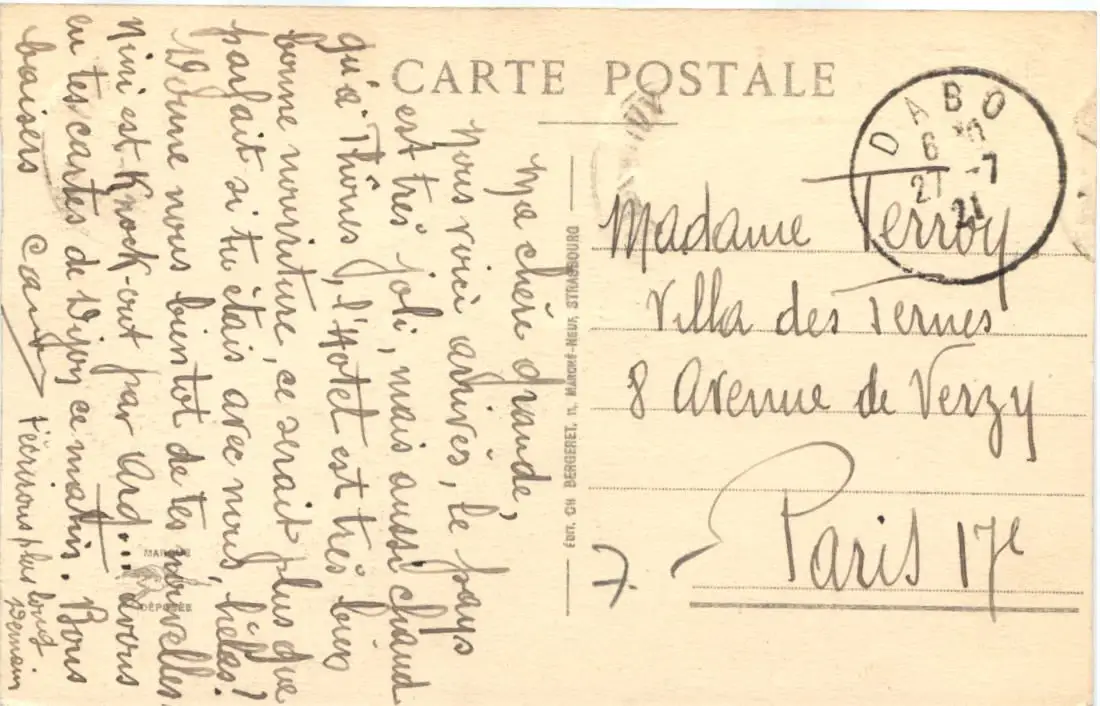 CARTE POSTALE
DABO
6 30
27 -7
21
Ma chère grande,
Nous voici arrivés, le pays
est très joli, mais aussi chaud
qu'à Thônes, l'Hotel est très bien
bonne nourriture, ce serait plus que
parfait si tu étais avec nous, hélas!
Donne nous bientot de tes nouvelles
Nini est Knock-out par avons
eu tes cartes de Dijon ce matin. Bons
baisers
t'écrirons plus long
Demain
ÉDIT. CH BERGERET, 11, MARCHÉ-NEUF, STRASBOURG
Madame Terroy
Villa des Ternes
8 Avenue de Verzy
Paris 17e
MARQUE
DÉPOSÉE